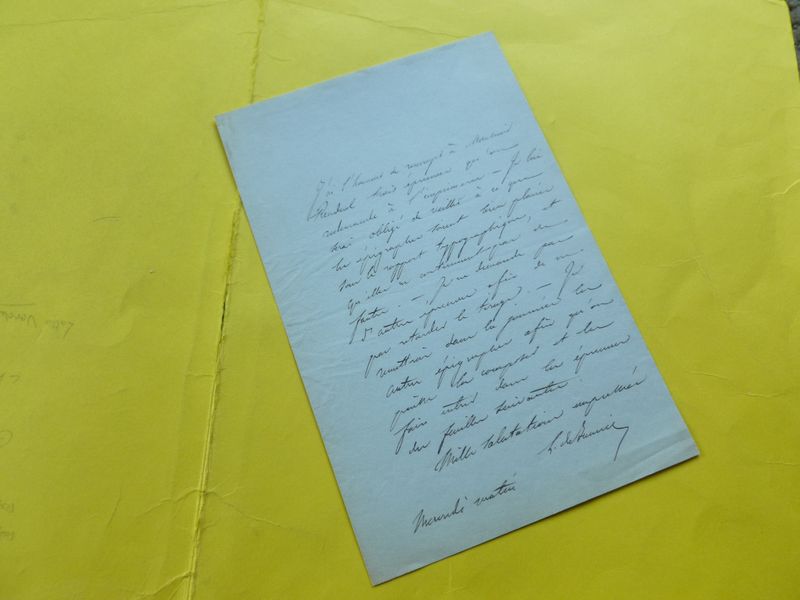 J'ai l'honneur de renvoyer à Monsieur
Renduel trois épreuves qu'on
redemande à l'imprimerie — Je lui
serai obligé de veiller à ce que
les épigraphes soient bien placées
sous le rapport typographique, et
qu'elles ne contiennent pas de
fautes. — Je ne demande pas
d'autres épreuves afin de ne
pas retarder le tirage. — Je
remettrai dans la journée les
autres épigraphes afin qu'on
puisse les composer et les
faire entrer dans les épreuves
des feuilles suivantes.
Mille salutations empressées
Mercredi matin